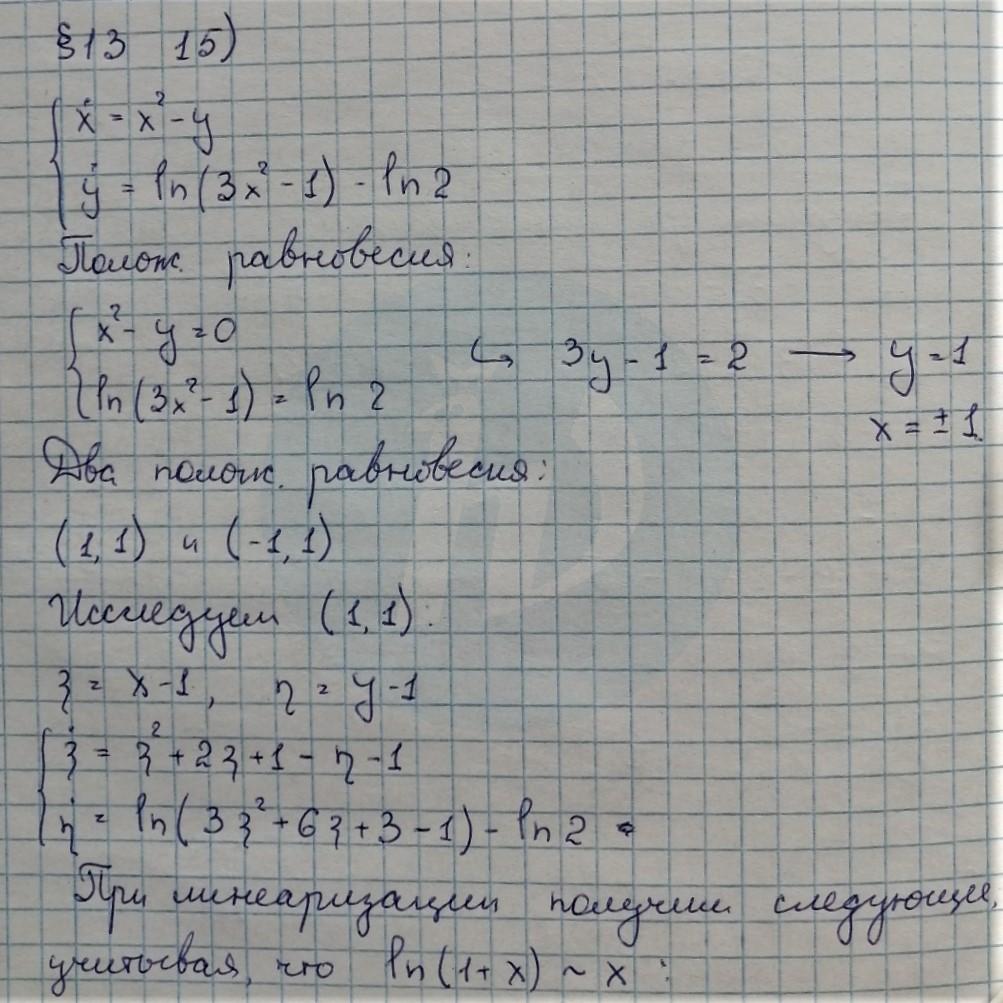 §13 15)
{ ẋ = x² - y
ẏ = ln(3x² - 1) - ln 2
Полож. равновесия:
{ x² - y = 0
ln(3x² - 1) = ln 2
↪ 3y - 1 = 2 → y = 1
x = ± 1
Два полож. равновесия:
(1, 1) и (-1, 1)
Исследуем (1, 1):
ξ = x - 1, η = y - 1
{ ξ̇ = ξ² + 2ξ + 1 - η - 1
η̇ = ln(3ξ² + 6ξ + 3 - 1) - ln 2
При линеаризации получим следующие,
учитывая, что ln(1 + x) ~ x :